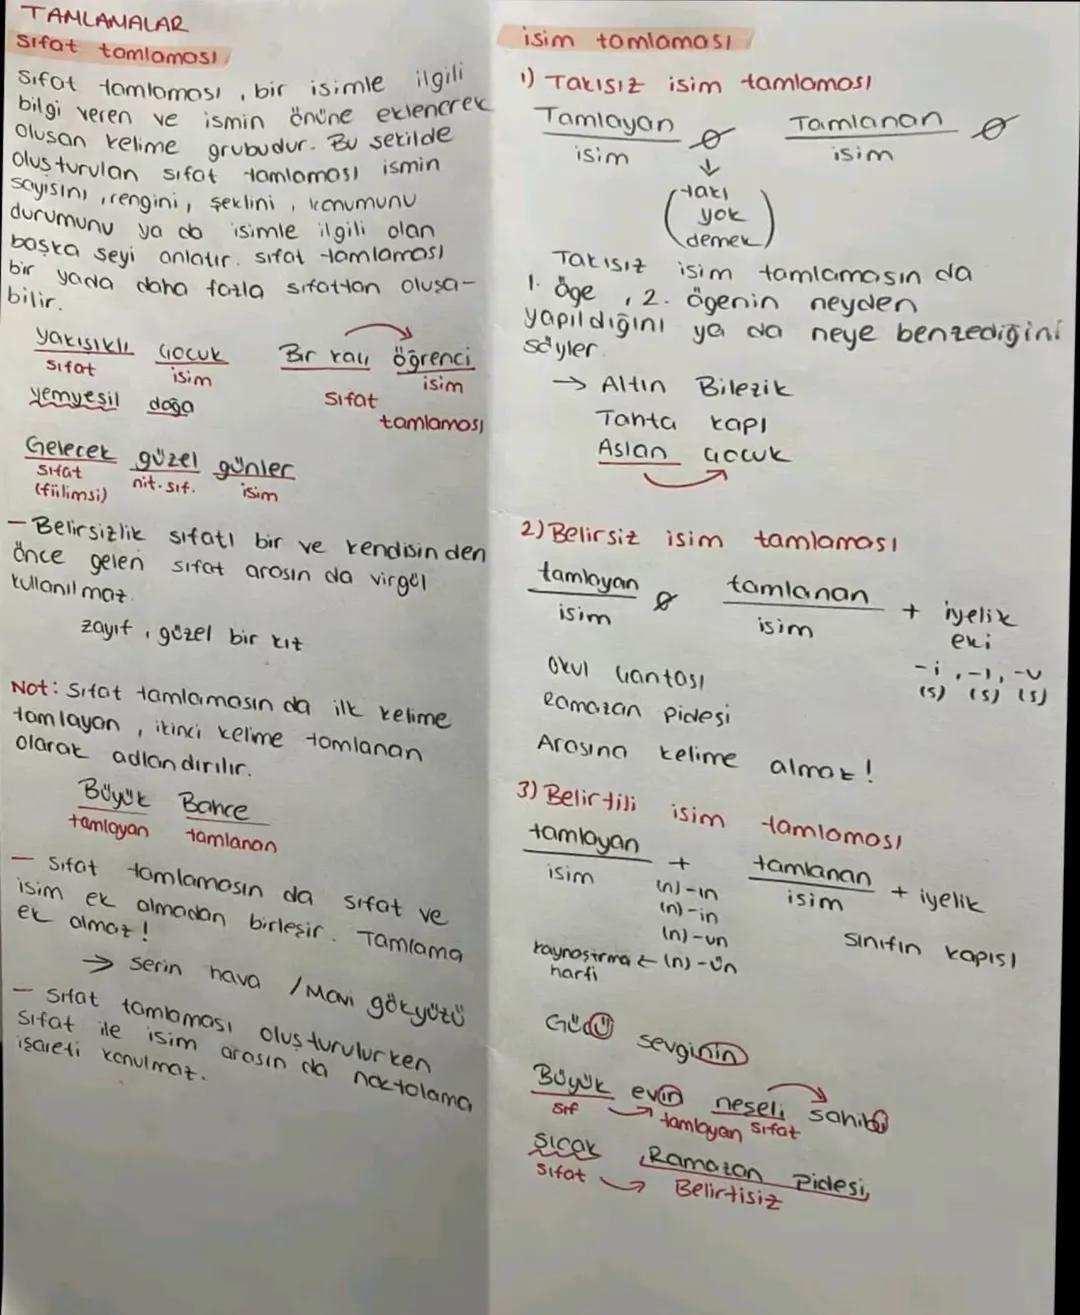 TAMLAMALAR
sıfat tamlaması
Sıfat tamlaması, bir isimle ilgili
bilgi veren ve ismin önüne eklenerek
oluşan kelime grubudur. Bu şekilde
oluşturulan sıfat tamlaması ismin
sayısını, rengini, şeklini, konumunu
durumunu ya da isimle ilgili olan
başka şeyi anlatır. sıfat tamlaması
bir yada daha fazla sıfattan oluşa-
bilir.
yakışıklı çocuk
sıfat isim
Bir kaç öğrenci
isim
sıfat
tamlaması
yemyeşil doğa
Gelecek güzel günler
sıfat nit. sıf. isim
(fiilimsi)
- Belirsizlik sıfatı bir ve kendisinden
önce gelen sıfat arasın da virgül
kullanılmaz.
zayıf, güzel bir kız
Not: sıfat tamlamasın da ilk kelime
tamlayan, ikinci kelime tamlanan
olarak adlandırılır.
Büyük Bahçe
tamlayan tamlanan
- Sıfat tamlamasın da sıfat ve
isim ek almadan birleşir. Tamlama
ek almaz!
→ serin hava / Mavi gökyüzü
- Sıfat tamlaması oluşturulurken
sıfat ile isim arasın da noktalama
işareti konulmaz.
isim tamlaması
1) Takısız isim tamlaması
Tamlayan ∅ Tamlanan ∅
isim isim
↓
(takı
yok
demek)
Takısız isim tamlamasın da
1. öge, 2. ögenin neyden
yapıldığını ya da neye benzediğini
söyler.
→ Altın Bilezik
Tahta kapı
Aslan çocuk
2) Belirsiz isim tamlaması
tamlayan ∅ tamlanan + iyelik
isim isim eki
-i, -ı, -u
(s) (s) (s)
Okul çantası
Ramazan pidesi
Arasına kelime almaz!
3) Belirtili isim tamlaması
tamlayan + tamlanan + iyelik
isim isim
(n)-ın
(n)-in
(n)-un
kaynaştırma ← (n)-ün
harfi
Sınıfın kapısı
Gücü sevginin
Büyük evin neşeli sahibi
sıf tamlayan sıfat
Sıcak Ramazan Pidesi,
sıfat → Belirtisiz